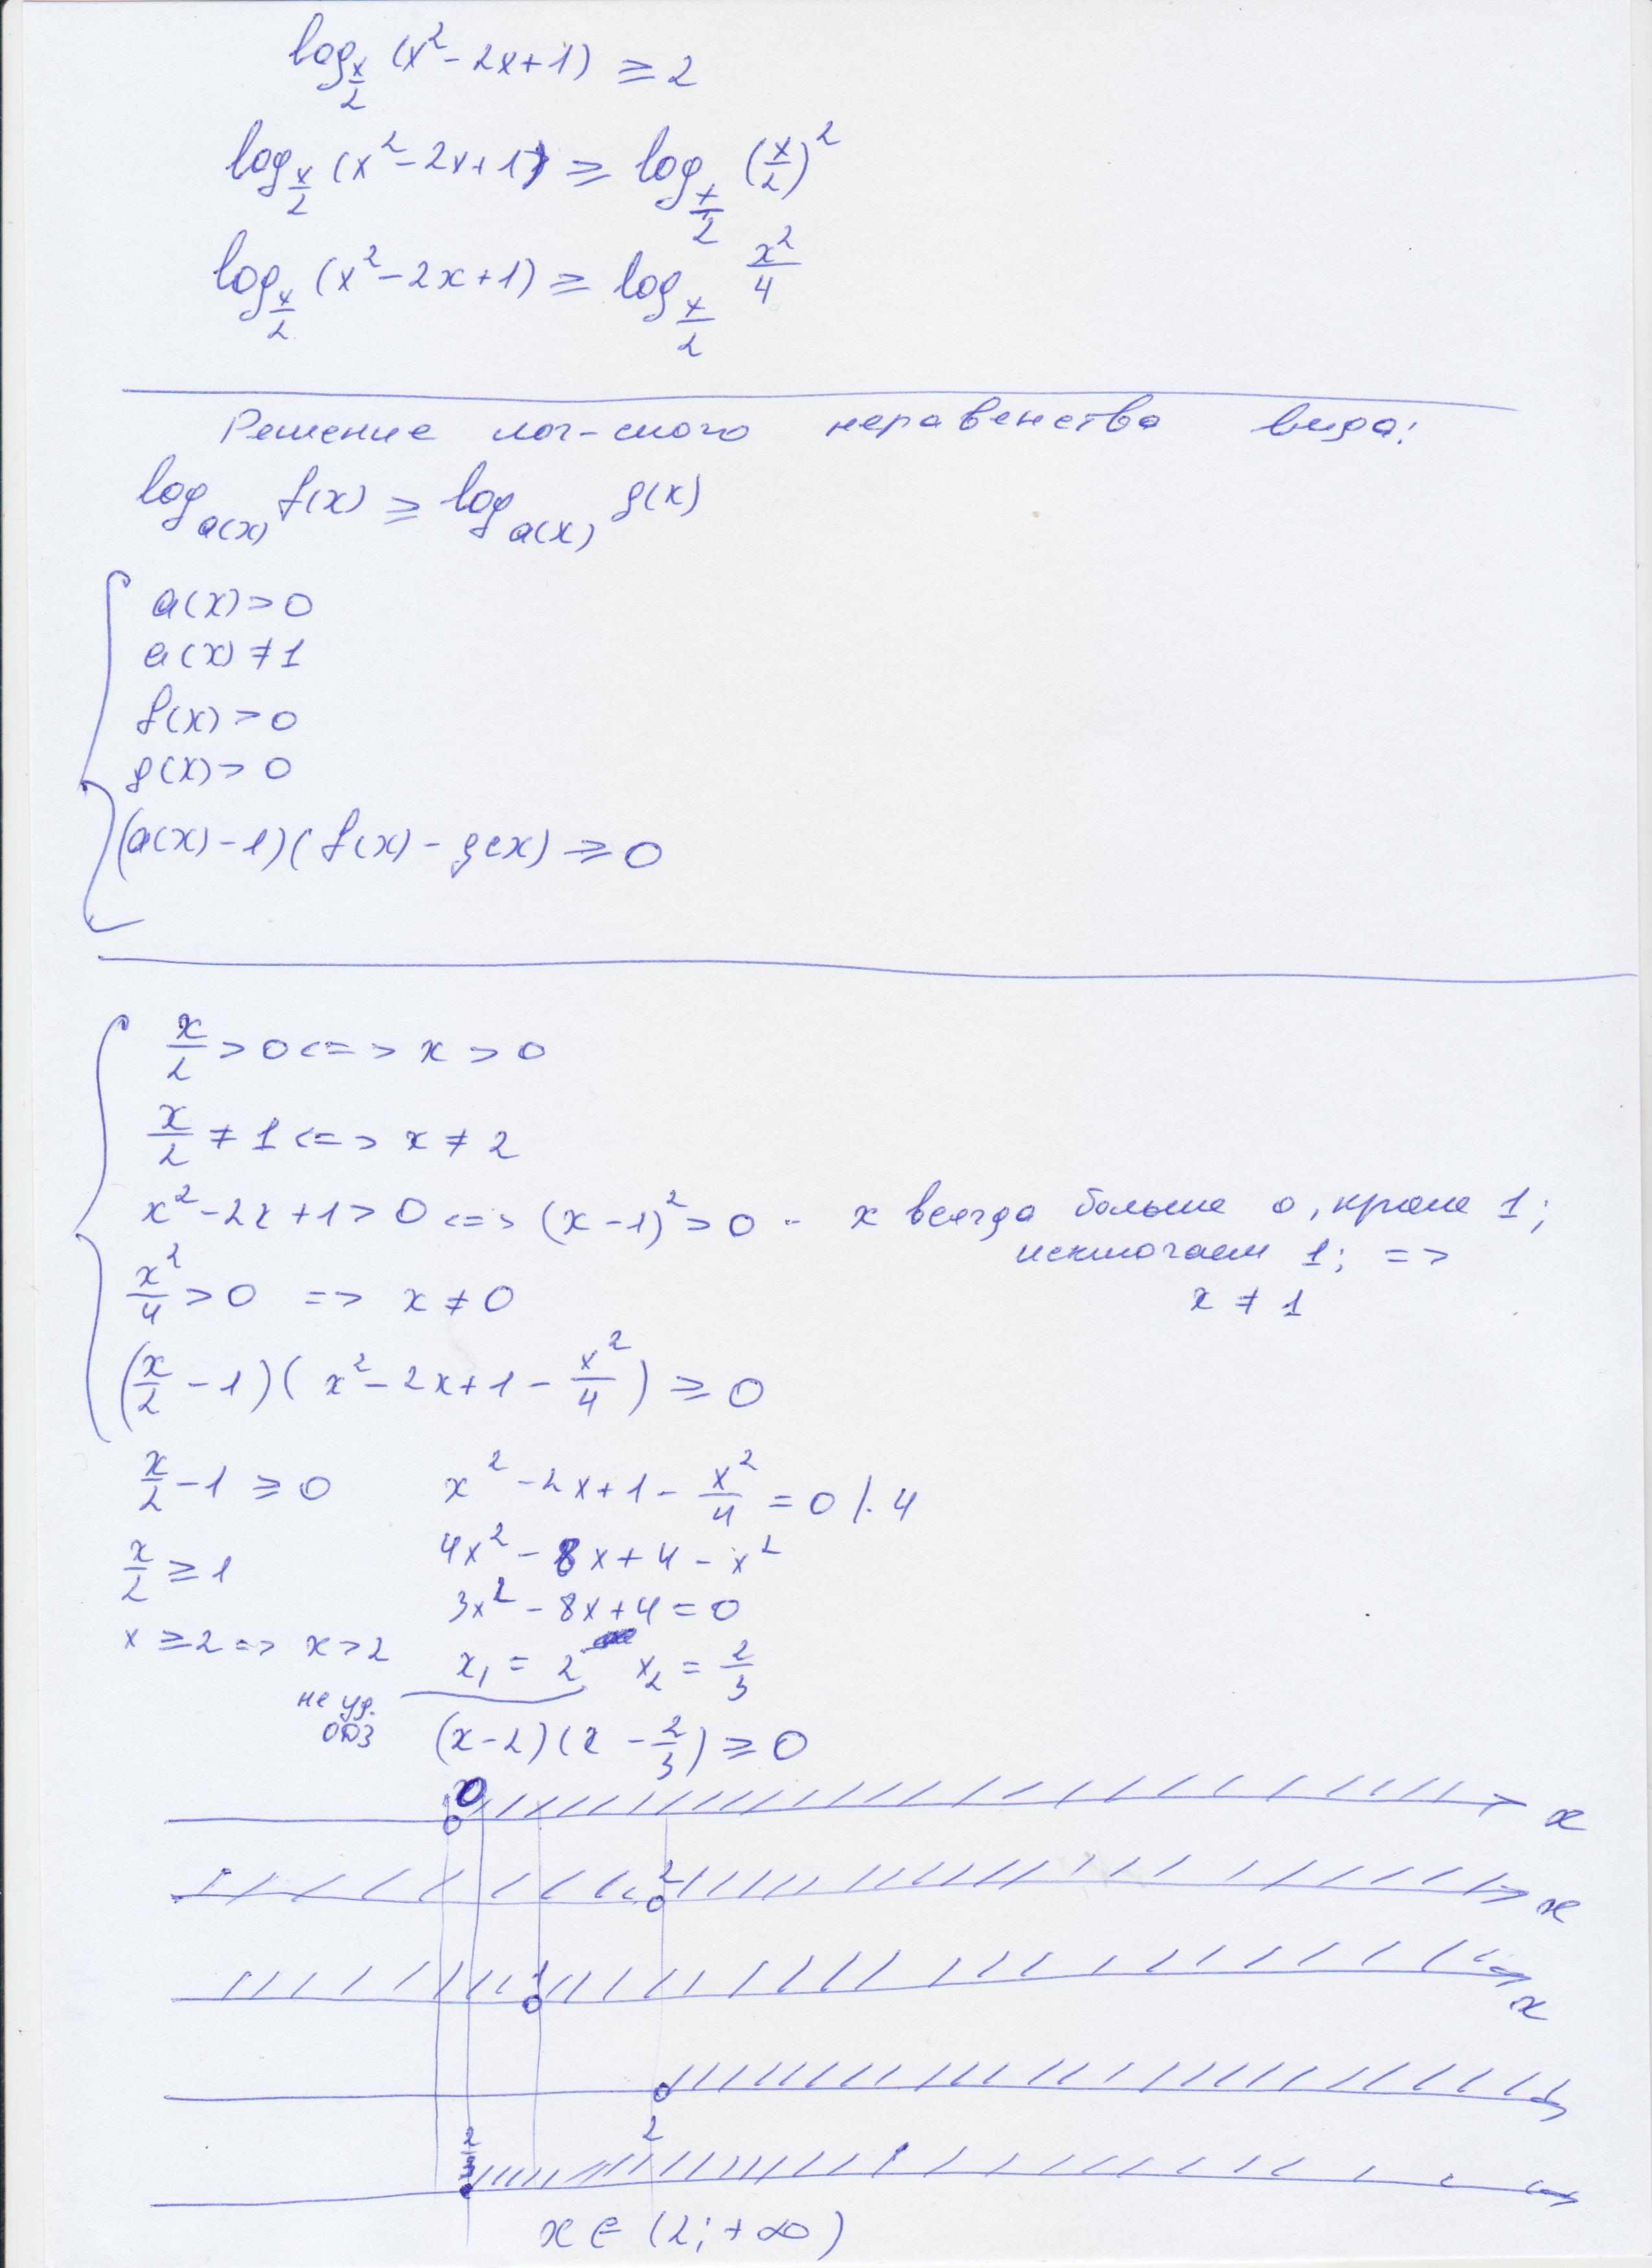 log_{x/2} (x² - 2x + 1) ≥ 2
log_{x/2} (x² - 2x + 1) ≥ log_{x/2} (x/2)²
log_{x/2} (x² - 2x + 1) ≥ log_{x/2} x²/4
Решение лог-ского неравенства вида:
log_{a(x)} f(x) ≥ log_{a(x)} g(x)
a(x) > 0
a(x) ≠ 1
f(x) > 0
g(x) > 0
(a(x) - 1)(f(x) - g(x) ≥ 0
x/2 > 0 <=> x > 0
x/2 ≠ 1 <=> x ≠ 2
x² - 2x + 1 > 0 <=> (x - 1)² > 0 - x всегда больше 0, кроме 1;
исключаем 1; =>
x²/4 > 0 => x ≠ 0
x ≠ 1
(x/2 - 1)(x² - 2x + 1 - x²/4) ≥ 0
x/2 - 1 ≥ 0
x² - 2x + 1 - x²/4 = 0 /· 4
x/2 ≥ 1
4x² - 8x + 4 - x²
3x² - 8x + 4 = 0
x ≥ 2 => x > 2
x₁ = 2 x₂ = 2/3
не уд.
ОДЗ
(x - 2)(x - 2/3) ≥ 0
0
x
2
x
1
x
2
2/3
x ∈ (2; +∞)